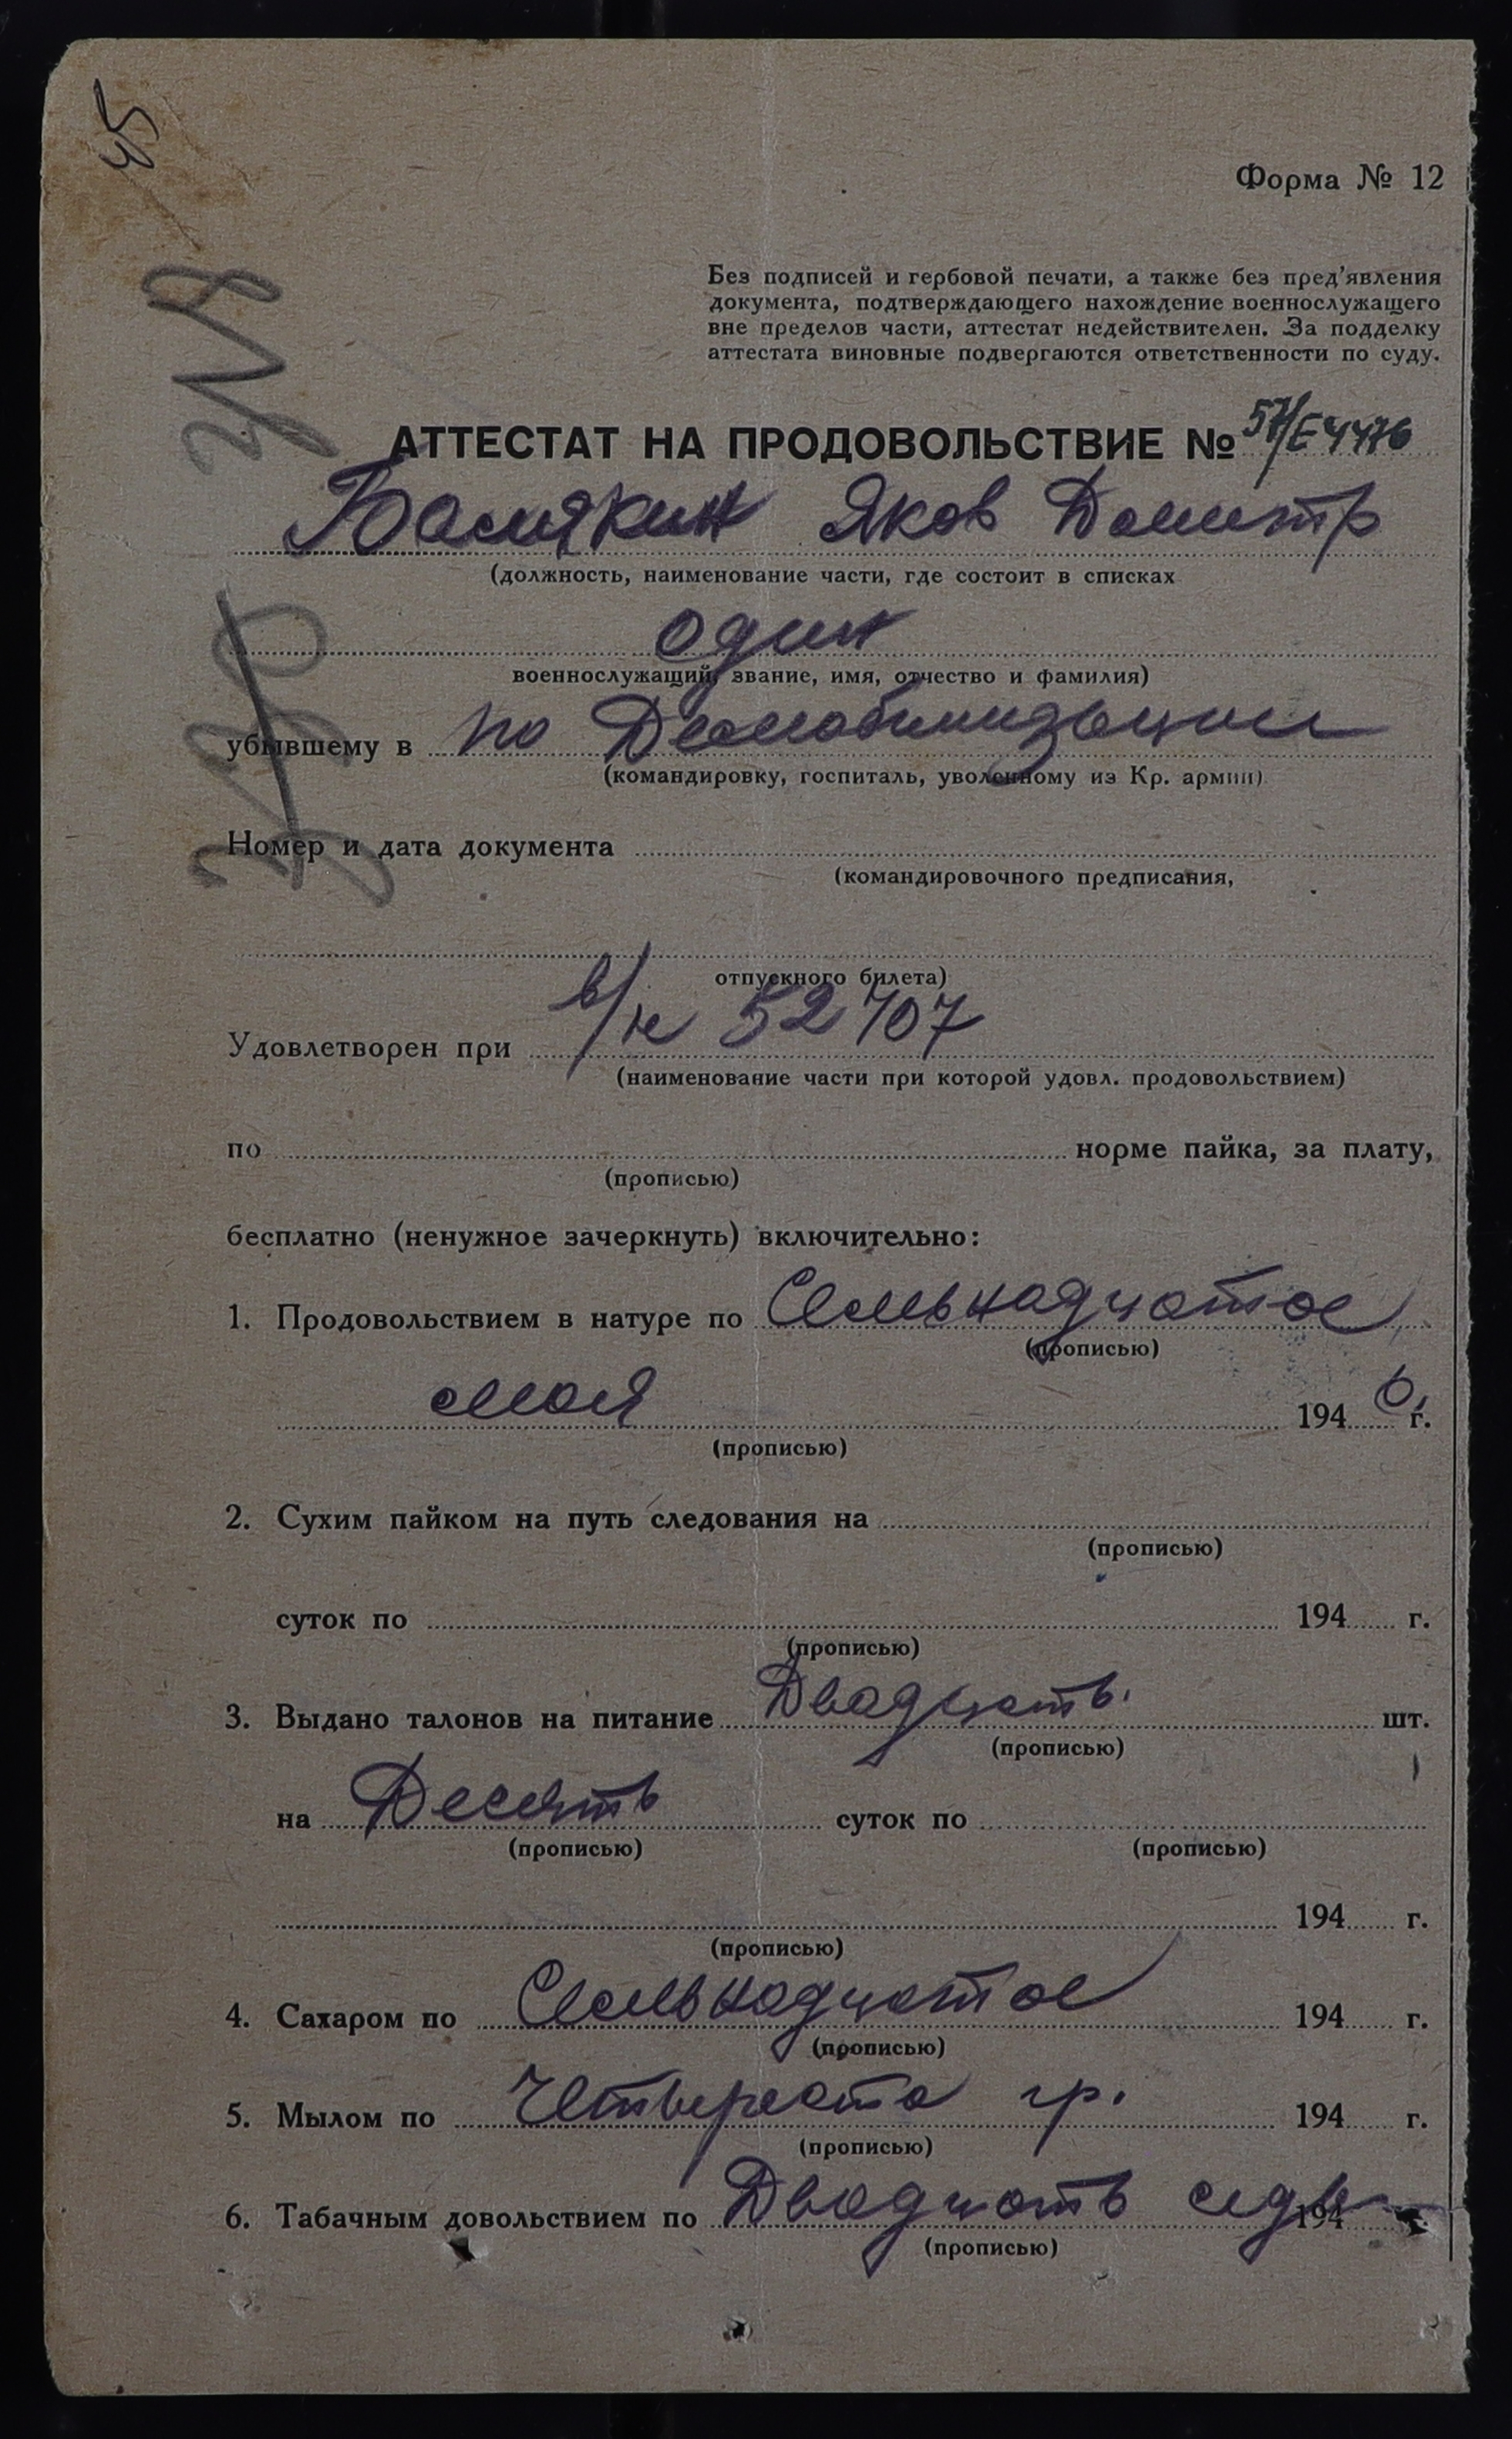 45
Форма № 12
Без подписей и гербовой печати, а также без пред'явления
документа, подтверждающего нахождение военнослужащего
вне пределов части, аттестат недействителен. За подделку
аттестата виновные подвергаются ответственности по суду.
АТТЕСТАТ НА ПРОДОВОЛЬСТВИЕ №
Яков Дмитр
(должность, наименование части, где состоит в списках
один
военнослужащий, звание, имя, отчество и фамилия)
убывшему в по Демобилизации
(командировку, госпиталь, уволенному из Кр. армии)
Номер и дата документа
(командировочного предписания,
отпускного билета)
Удовлетворен при в/ч 52707
(наименование части при которой удовл. продовольствием)
по норме пайка, за плату,
(прописью)
бесплатно (ненужное зачеркнуть) включительно:
1. Продовольствием в натуре по Семьнадцатое
(прописью)
мая 1946 г.
(прописью)
2. Сухим пайком на путь следования на
(прописью)
суток по 194 г.
(прописью)
3. Выдано талонов на питание Двадцать шт.
(прописью)
на Десять суток по
(прописью) (прописью)
194 г.
(прописью)
4. Сахаром по Семьнадцатое 194 г.
(прописью)
5. Мылом по Четвереста гр. 194 г.
(прописью)
6. Табачным довольствием по Двадцать 194 г.
(прописью)